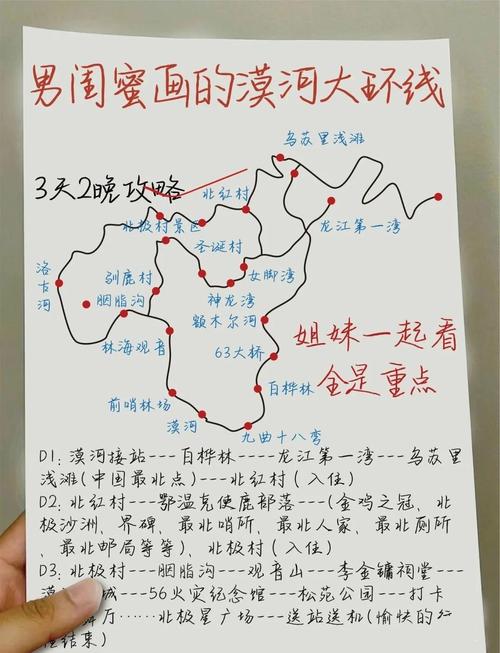 男闺蜜画的漠河大环线
乌苏里浅滩
3天2晚攻略
北红村
北极村景区
龙江第一湾
圣诞村
洛古河
驯鹿村
女脚湾
胭脂沟
神龙湾
额木尔河
林海观音
63大桥
姐妹一起看
全是重点
百桦林
前哨林场
漠河
九曲十八弯
D1: 漠河接站---百桦林----龙江第一湾---乌苏里
浅滩(中国最北点)---北红村(入住)
D2: 北红村---鄂温克使鹿部落---(金鸡之冠、北
极沙洲、界碑、最北哨所、最北人家、最北厕所
、最北邮局等等)、北极村(入住)
D3: 北极村---胭脂沟---观音山---李金镛祠堂---
漠 城---56火灾纪念馆---松苑公园---打卡
舞厅……北极星广场----送站送机(愉快的行
程结束)